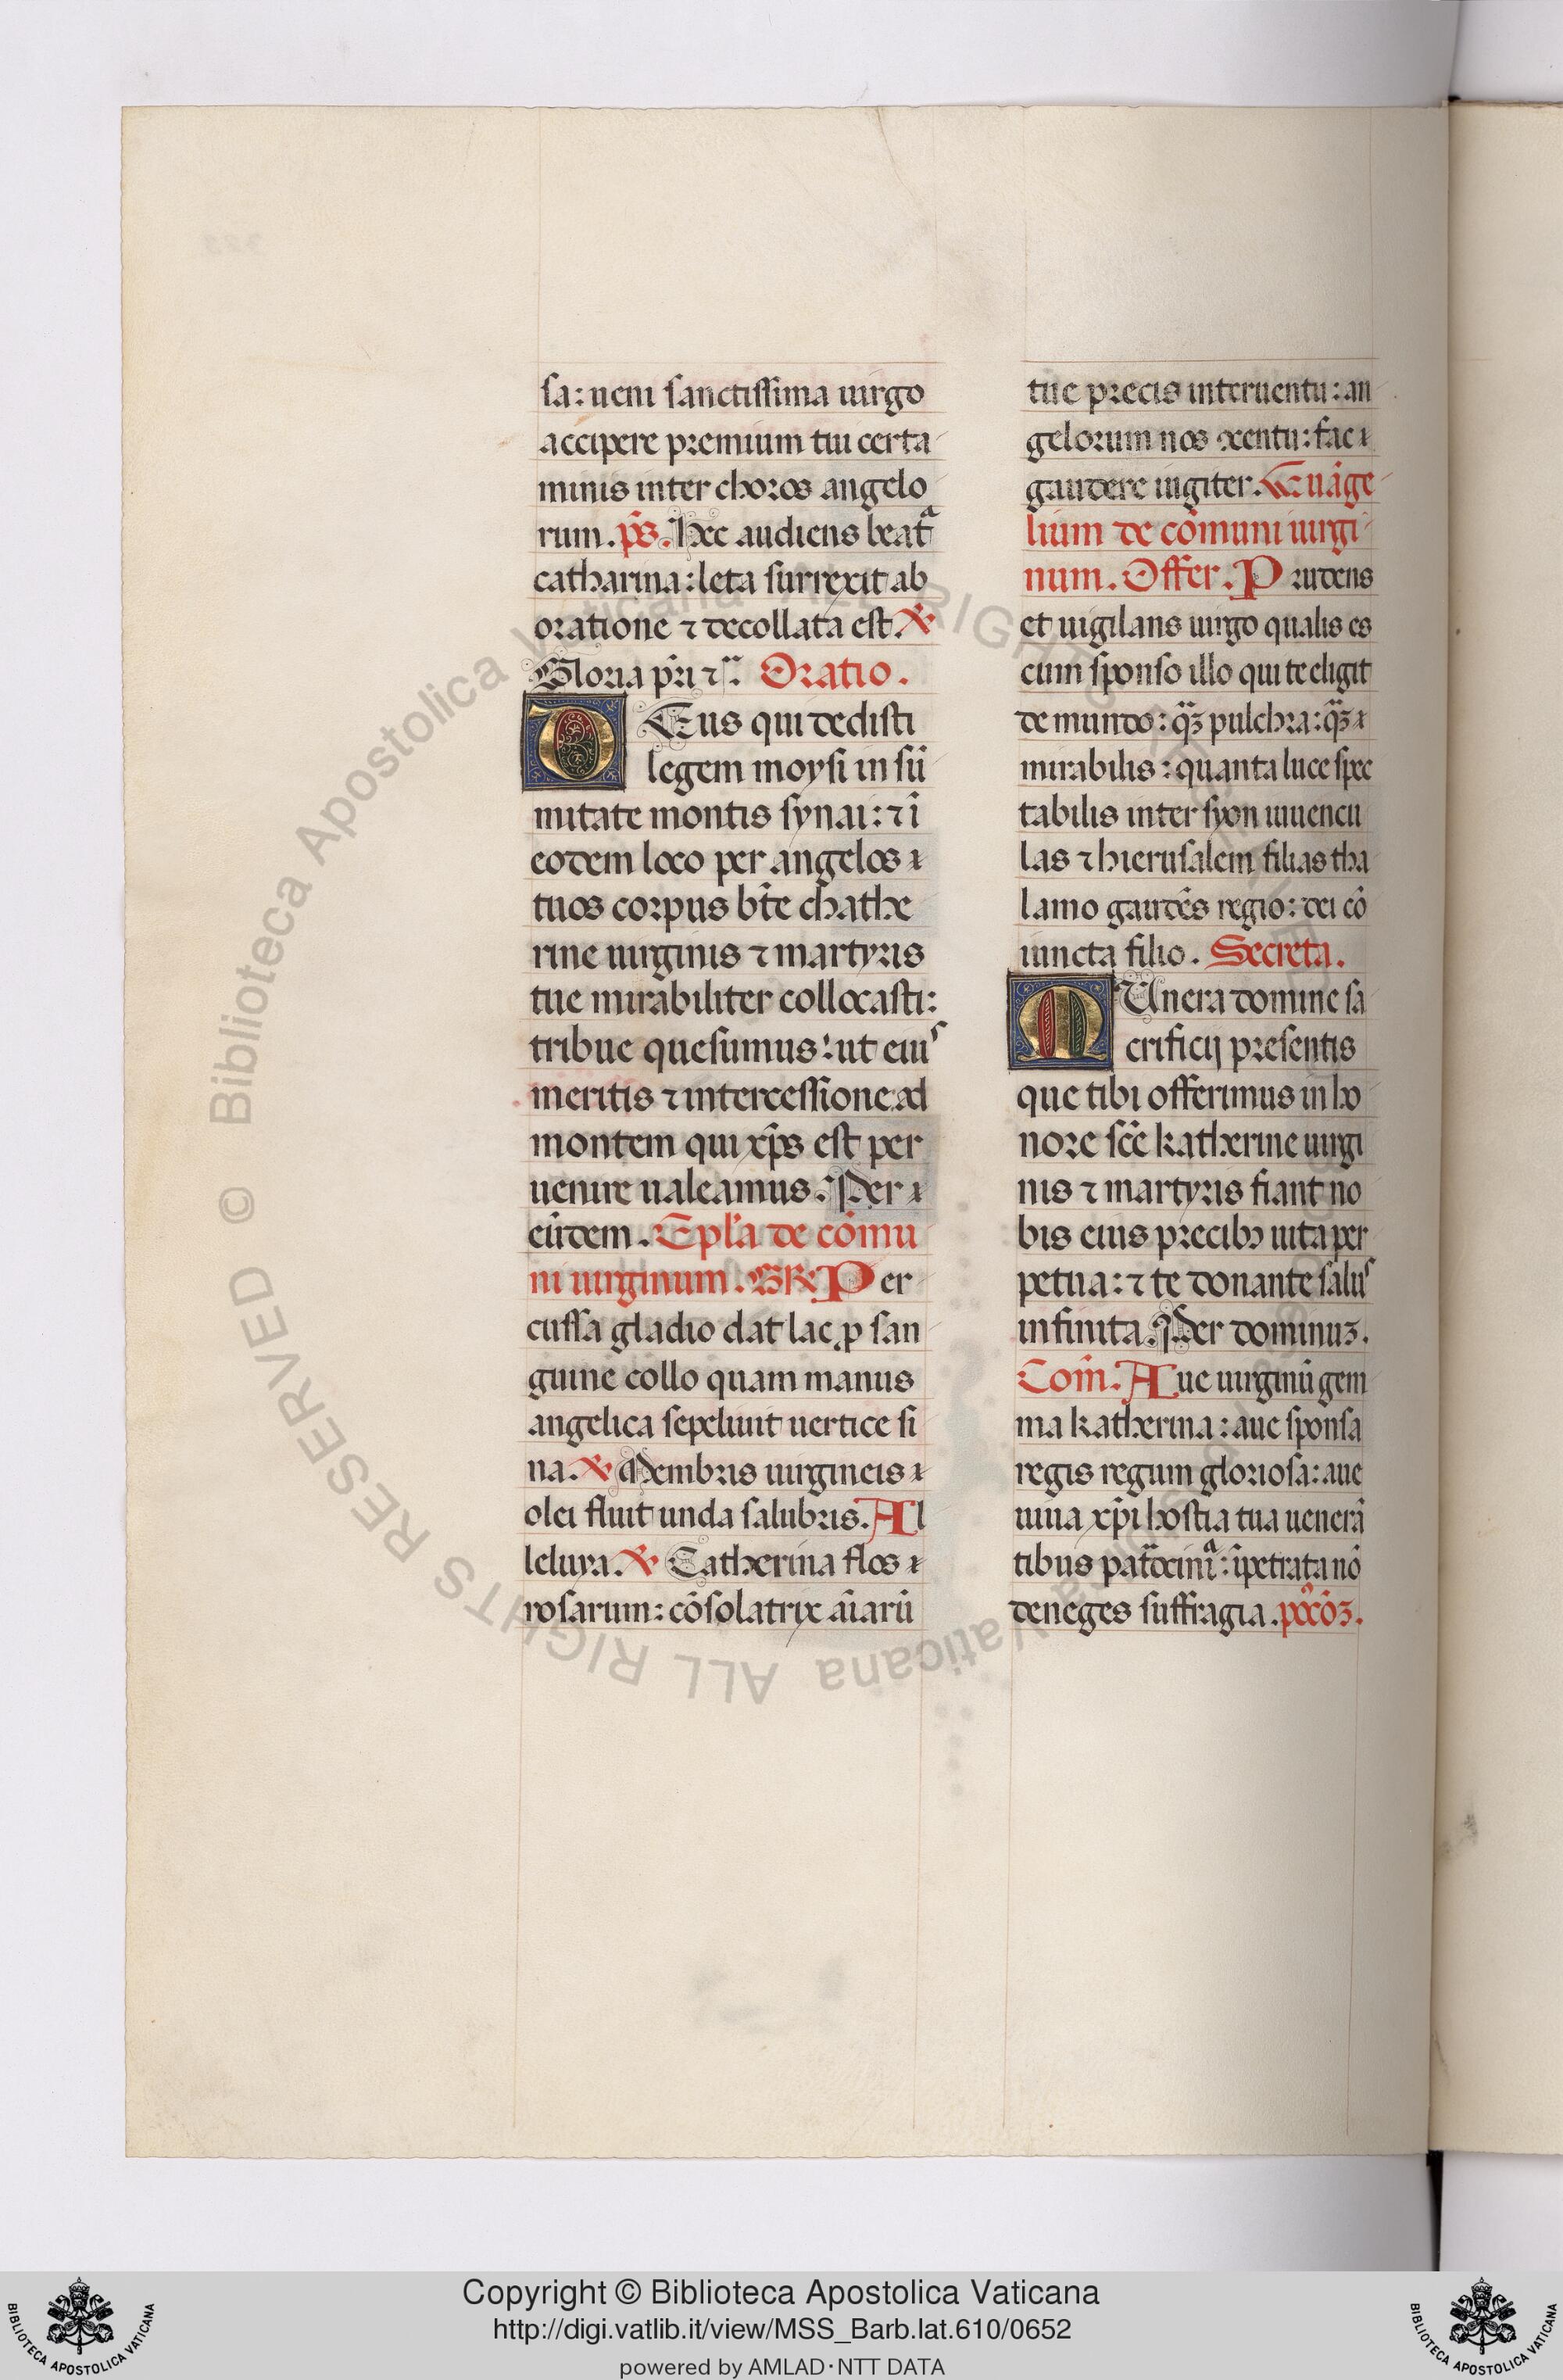 sa: ueni sanctissima uirgo
accipere premium tui certa
minis inter choros angelo
rum. ps̄. Hec audiens beatᵃ
catharina: leta surrexit ab
oratione ⁊ decollata est. ℣
Gloria pr̄i ⁊ Oratio.
DEus qui dedisti
legem moysi in sū
mitate montis synai: ⁊ ī
eodem loco per angelos
tuos corpus bt̄e chathe
rine uirginis ⁊ martyris
tue mirabiliter collocasti:
tribue quesumus: ut eiuˢ
meritis ⁊ intercessione ad
montem qui xp̄s est per
uenire ualeamus. Per
eūdem. Epl̄a de cōmu
ni uirginum. GR. Per
cussa gladio dat lac ꝓ san
guine collo quam manus
angelica sepeliuit uertice si
na. ℣ Membris uirgineis
olei fluit unda salubris. Al
leluya. ℣ Catherina flos
rosarum: cōsolatrix aīarū
tue precis interuentu: an
gelorum nos centu: fac
gaudere iugiter. Euāge
lium de cōmuni uirgi
num. Offer. Prudens
et uigilans uirgo qualis es
cum sponso illo qui te eligit
de mundo: qᵃ̄ꝫ pulchra: qᵃ̄ꝫ
mirabilis: quanta luce spec
tabilis inter syon iuuencu
las ⁊ hierusalem filias tha
lamo gaudēs regio: dei cō
iuncta filio. Secreta.
MUnera domine sa
crificij presentis
que tibi offerimus in ho
nore sc̄e katherine uirgi
nis ⁊ martyris fiant no
bis eius precibꝫ uita per
petua: ⁊ te donante saluˢ
infinita. Per dominuꝫ.
Com̄. Aue uirginū gem
ma katherina: aue sponsa
regis regum gloriosa: aue
uiua xp̄i hostia tua uenerā
tibus pat̄ociniᵃ: īpetrata nō
deneges suffragia. pꝰcōꝫ.
Copyright © Biblioteca Apostolica Vaticana
http://digi.vatlib.it/view/MSS_Barb.lat.610/0652
powered by AMLAD·NTT DATA
BIBLIOTECA APOSTOLICA VATICANA
BIBLIOTECA APOSTOLICA VATICANA
© Biblioteca Apostolica Vaticana ALL RIGHTS RESERVED